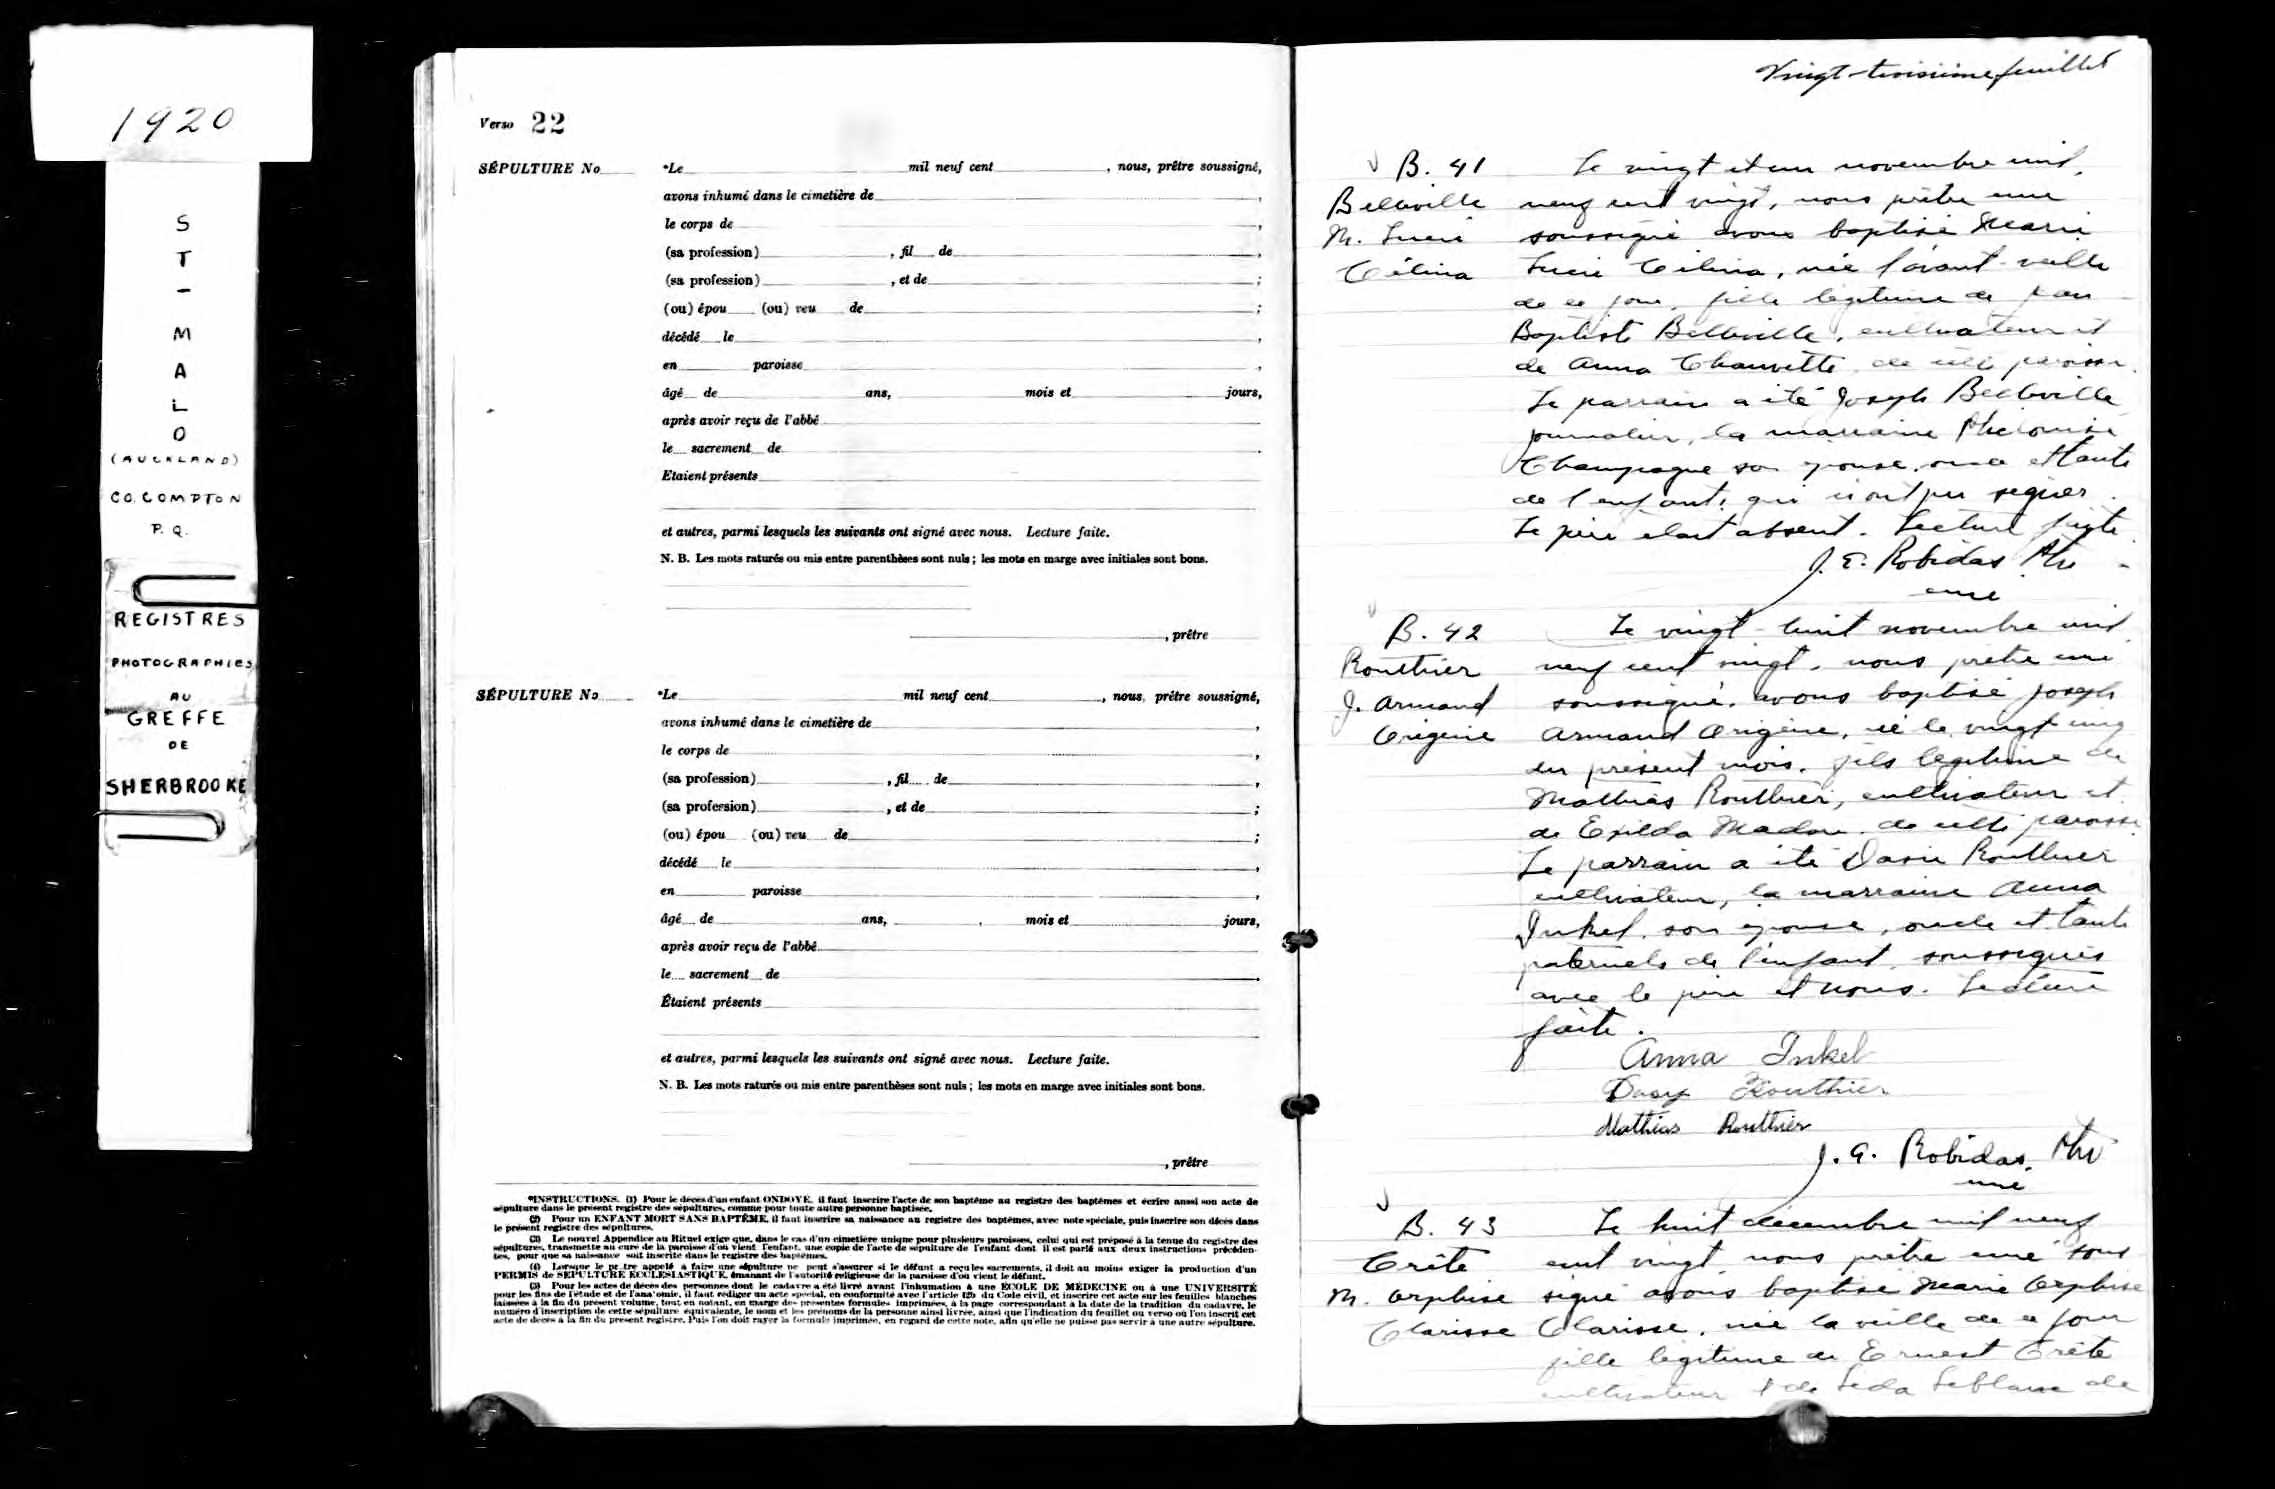 1920
S
T
-
M
A
L
O
(AUCKLAND)
CO. COMPTON
P. Q.
REGISTRES
PHOTOGRAPHIES
AU
GREFFE
DE
SHERBROOKE
Verso 22
SÉPULTURE No *Le mil neuf cent , nous, prêtre soussigné,
avons inhumé dans le cimetière de ,
le corps de ,
(sa profession) , fil de ,
(sa profession) , et de ;
(ou) épou (ou) veu de ;
décédé le ,
en paroisse ,
âgé de ans, mois et jours,
après avoir reçu de l'abbé
le sacrement de .
Etaient présents
et autres, parmi lesquels les suivants ont signé avec nous. Lecture faite.
N. B. Les mots raturés ou mis entre parenthèses sont nuls ; les mots en marge avec initiales sont bons.
, prêtre
SÉPULTURE No *Le mil neuf cent , nous, prêtre soussigné,
avons inhumé dans le cimetière de ,
le corps de ,
(sa profession) , fil de ,
(sa profession) , et de ;
(ou) épou (ou) veu de ;
décédé le ,
en paroisse ,
âgé de ans, mois et jours,
après avoir reçu de l'abbé
le sacrement de .
Êtaient présents
et autres, parmi lesquels les suivants ont signé avec nous. Lecture faite.
N. B. Les mots raturés ou mis entre parenthèses sont nuls ; les mots en marge avec initiales sont bons.
, prêtre
*INSTRUCTIONS. (1) Pour le décès d'un enfant ONDOYÉ, il faut inscrire l'acte de son baptême au registre des baptêmes et écrire aussi son acte de
sépulture dans le présent registre des sépultures, comme pour toute autre personne baptisée.
(2) Pour un ENFANT MORT SANS BAPTÊME, il faut inscrire sa naissance au registre des baptêmes, avec note spéciale, puis inscrire son décès dans
le présent registre des sépultures.
(3) Le nouvel Appendice au Rituel exige que, dans le cas d'un cimetière unique pour plusieurs paroisses, celui qui est préposé à la tenue du registre des
sépultures, transmette au curé de la paroisse d'où vient l'enfant, une copie de l'acte de sépulture de l'enfant dont il est parlé aux deux instructions précéden-
tes, pour que sa naissance soit inscrite dans le registre des baptêmes.
(4) Lorsque le prêtre appelé à faire une sépulture ne peut s'assurer si le défunt a reçu les sacrements, il doit au moins exiger la production d'un
PERMIS de SÉPULTURE ECCLÉSIASTIQUE, émanant de l'autorité religieuse de la paroisse d'où vient le défunt.
(5) Pour les actes de décès des personnes dont le cadavre a été livré avant l'inhumation à une ÉCOLE DE MÉDECINE ou à une UNIVERSITÉ
pour les fins de l'étude et de l'anatomie, il faut rédiger un acte spécial, en conformité avec l'article du Code civil, et inscrire cet acte sur les feuilles blanches
laissées à la fin du présent volume, tout en notant, en marge des présentes formules imprimées, à la page correspondant à la date de la tradition du cadavre, le
numéro d'inscription de cette sépulture équivalente, le nom et les prénoms de la personne ainsi livrée, ainsi que l'indication du feuillet ou verso où l'on inscrit cet
acte de décès à la fin du présent registre. Puis l'on doit rayer la formule imprimée, en regard de cette note, afin qu'elle ne puisse pas servir à une autre sépulture.
Vingt-troisième feuillet
B. 41
Belleville
M. Lucie
Célina
Le vingt et un novembre mil
neuf cent vingt, nous prêtre curé
soussigné avons baptisé Marie
Lucie Célina, née l'avant-veille
de ce jour, fille légitime de Jean
Baptiste Belleville, cultivateur et
de Anna Chauvette de cette paroisse.
Le parrain a été Joseph Belleville
journalier, la marraine
Champagne son épouse, oncle et tante
de l'enfant, qui n'ont pu signer.
Le père était absent. Lecture faite.
J. E. Robidas Ptre
curé
B. 42
Routhier
J. Armand
Origène
Le vingt-huit novembre mil
neuf cent vingt, nous prêtre curé
soussigné, avons baptisé Joseph
Armand Origène, né le vingt cinq
du présent mois, fils légitime de
Mathias Routhier, cultivateur et
de Exilda Madore de cette paroisse.
Le parrain a été Routhier
cultivateur, la marraine Anna
Inkel, son épouse, oncle et tante
paternels de l'enfant, soussignés
avec le père et nous. Lecture
faite.
Anna Inkel
Routhier
Mathias Routhier
J. E. Robidas, Ptre
curé
B. 43
Crête
M. Orphise
Clarisse
Le huit décembre mil neuf
cent vingt nous prêtre curé sous
signé avons baptisé Marie Orphise
Clarisse, née la veille de ce jour
fille légitime de Ernest Crête
cultivateur & de Léda Leblanc de